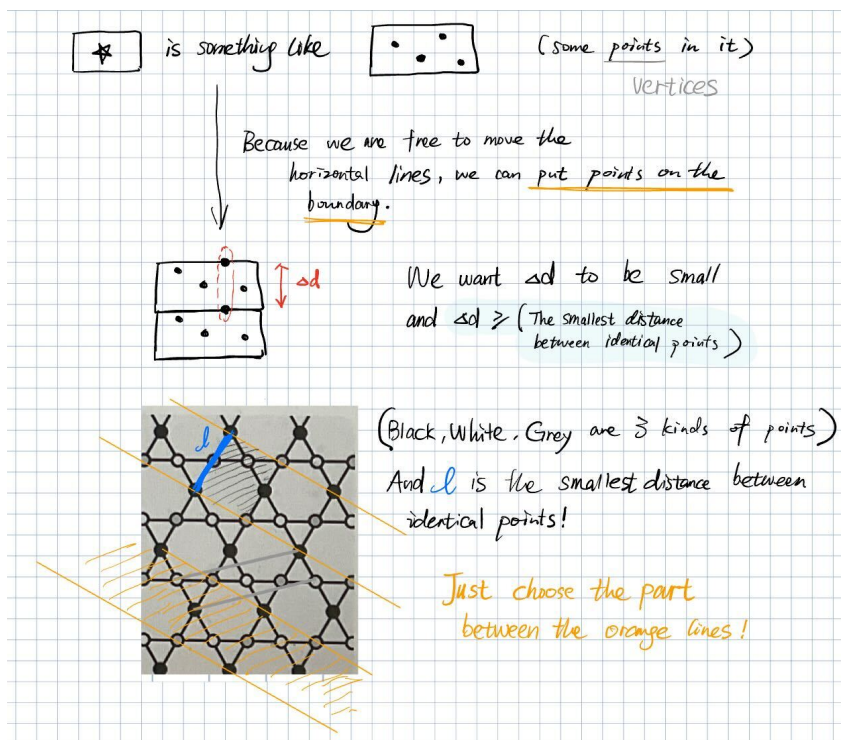 is something like (some points in it)
vertices
Because we are free to move the
horizontal lines, we can put points on the
boundary.
Δd
We want Δd to be small
and Δd ≥ (The smallest distance
between identical points)
l
(Black, White, Grey are 3 kinds of points)
And l is the smallest distance between
identical points!
Just choose the part
between the orange lines!